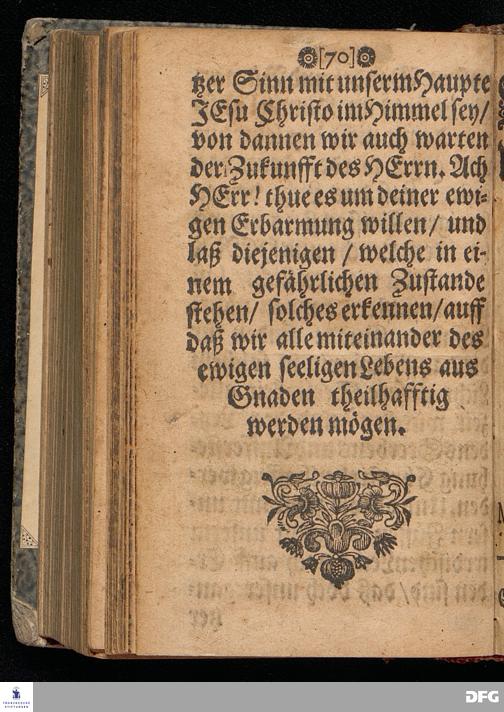 [70]
tzer Sinn mit unserm Haupte
JEsu Christo im Himmel sey/
von dannen wir auch warten
der Zukunfft des HErrn. Ach
HErr! thue es um deiner ewi-
gen Erbarmung willen/ und
laß diejenigen / welche in ei-
nem gefährlichen Zustande
stehen/ solches erkennen/ auff
daß wir alle miteinander des
ewigen seeligen Lebens aus
Gnaden theilhafftig
werden mögen.
FRANCKESCHE
STIFTUNGEN
DFG